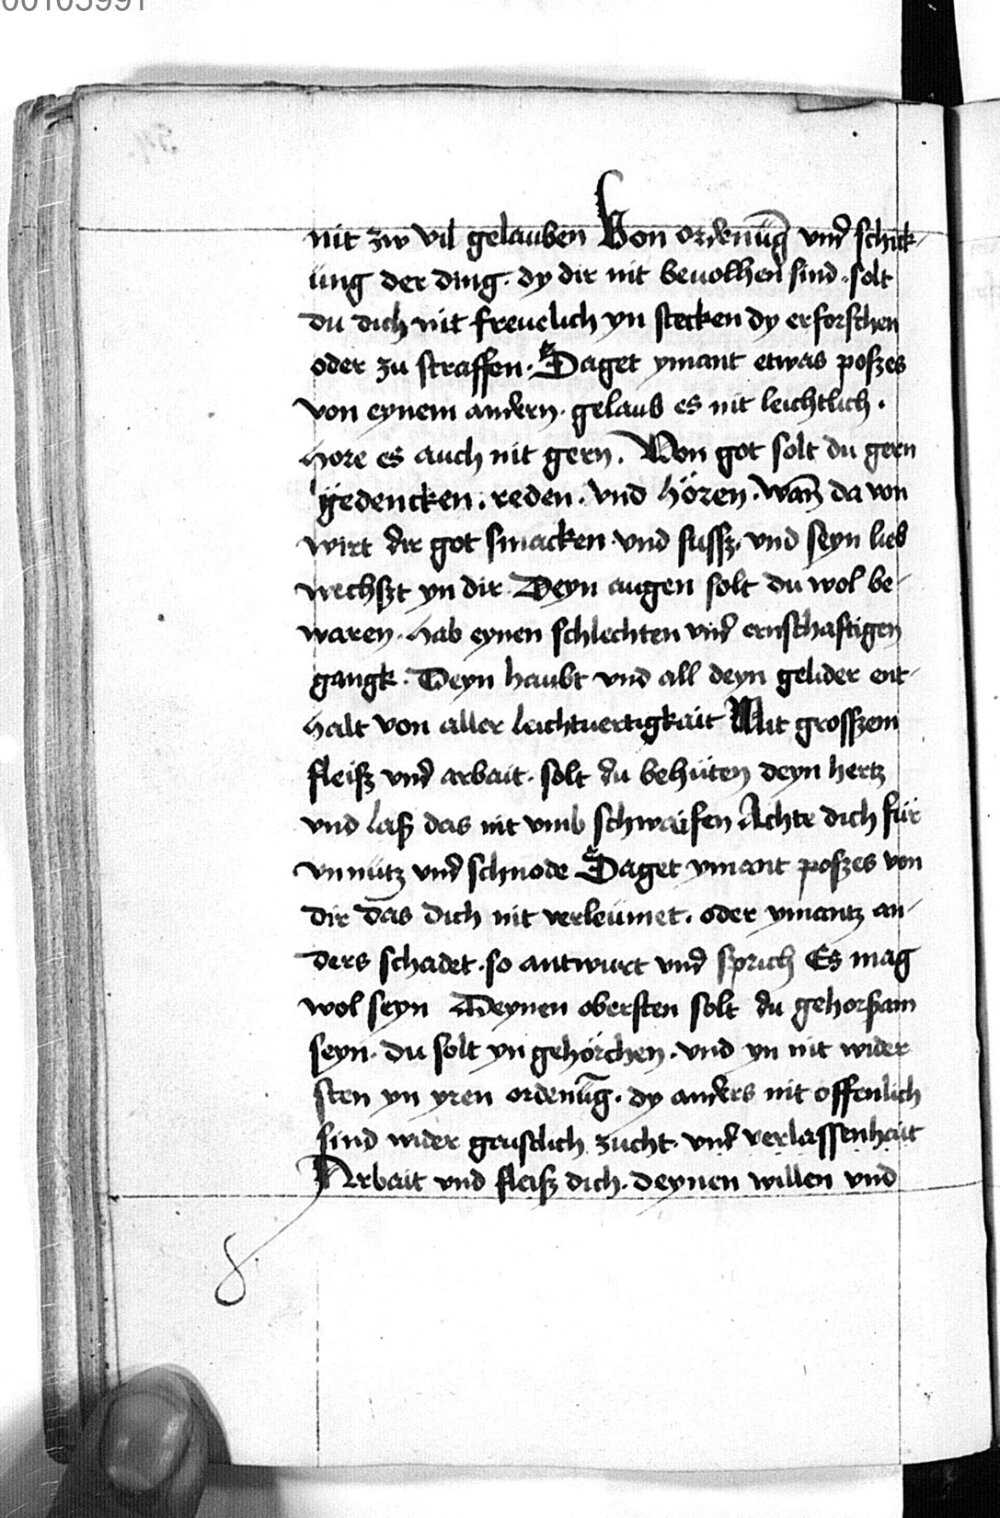 00103991
nit zw vil gelauben Von ordenūg vnd schick-
ung der ding. dy dir nit beuolhen sind. solt
du dich nit freuelich yn stecken dy erforschen
oder zu straffen. Saget ymant etwas poszes
von eynem andern. gelaub es nit leichtlich.
hore es auch nit gern. Von got solt du gern
gedencken. reden. vnd hören. wan̄ da von
wirt dir got smacken vnd sussz. vnd seyn lieb
wechszt yn dir. Deyn augen solt du wol be-
waren. hab eynen schlechten vnd ernsthaftigen
gangk. Deyn haubt vnd all deyn gelider ent-
halt von aller leichtuertigkait Mit groszem
fleisz vnd arbait. solt du behüten deyn hertz
vnd lasz das nit vmb schwaifen Achte dich für
vnnütz vnd schnode Saget ymant poszes von
dir das dich nit verleümet. oder ymantz an-
ders schadet. so antwurt vnd sprich Es mag
wol seyn Deynen obersten solt du gehorsam
seyn. du solt yn gehörchen. vnd yn nit wider
sten yn yren ordenūg. dy anders nit offenlich
sind wider geistlich zucht. vnd verlassenhait
Arbait vnd fleisz dich. deynen willen vnd